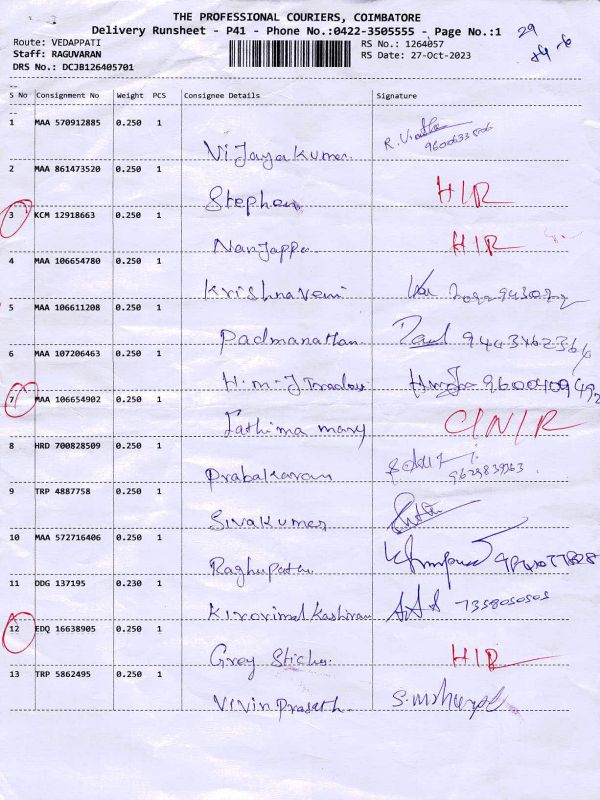 THE PROFESSIONAL COURIERS, COIMBATORE
Delivery Runsheet - P41 - Phone No.:0422-3505555 - Page No.:1
29
Route: VEDAPPATI
RS No.: 1264057
Staff: RAGUVARAN
RS Date: 27-Oct-2023
DRS No.: DCJB126405701
S No Consignment No Weight PCS Consignee Details Signature
1 MAA 570912885 0.250 1
Vijayakumar
2 MAA 861473520 0.250 1
Stephen HIR
3 KCM 12918663 0.250 1
Nanjappa HIR
4 MAA 106654780 0.250 1
Krishnaveni
5 MAA 106611208 0.250 1
Padmanathan
6 MAA 107206463 0.250 1
H.m.J 9600409492
7 MAA 106654902 0.250 1
Fathima mary C/N/R
8 HRD 700828509 0.250 1
Prabakaran
9 TRP 4887758 0.250 1
Sivakumar
10 MAA 572716406 0.250 1
Raghupathi
11 DDG 137195 0.230 1
Kashiram 7358050505
12 EDQ 16638905 0.250 1
Grey HIR
13 TRP 5862495 0.250 1
Vivin Prasath